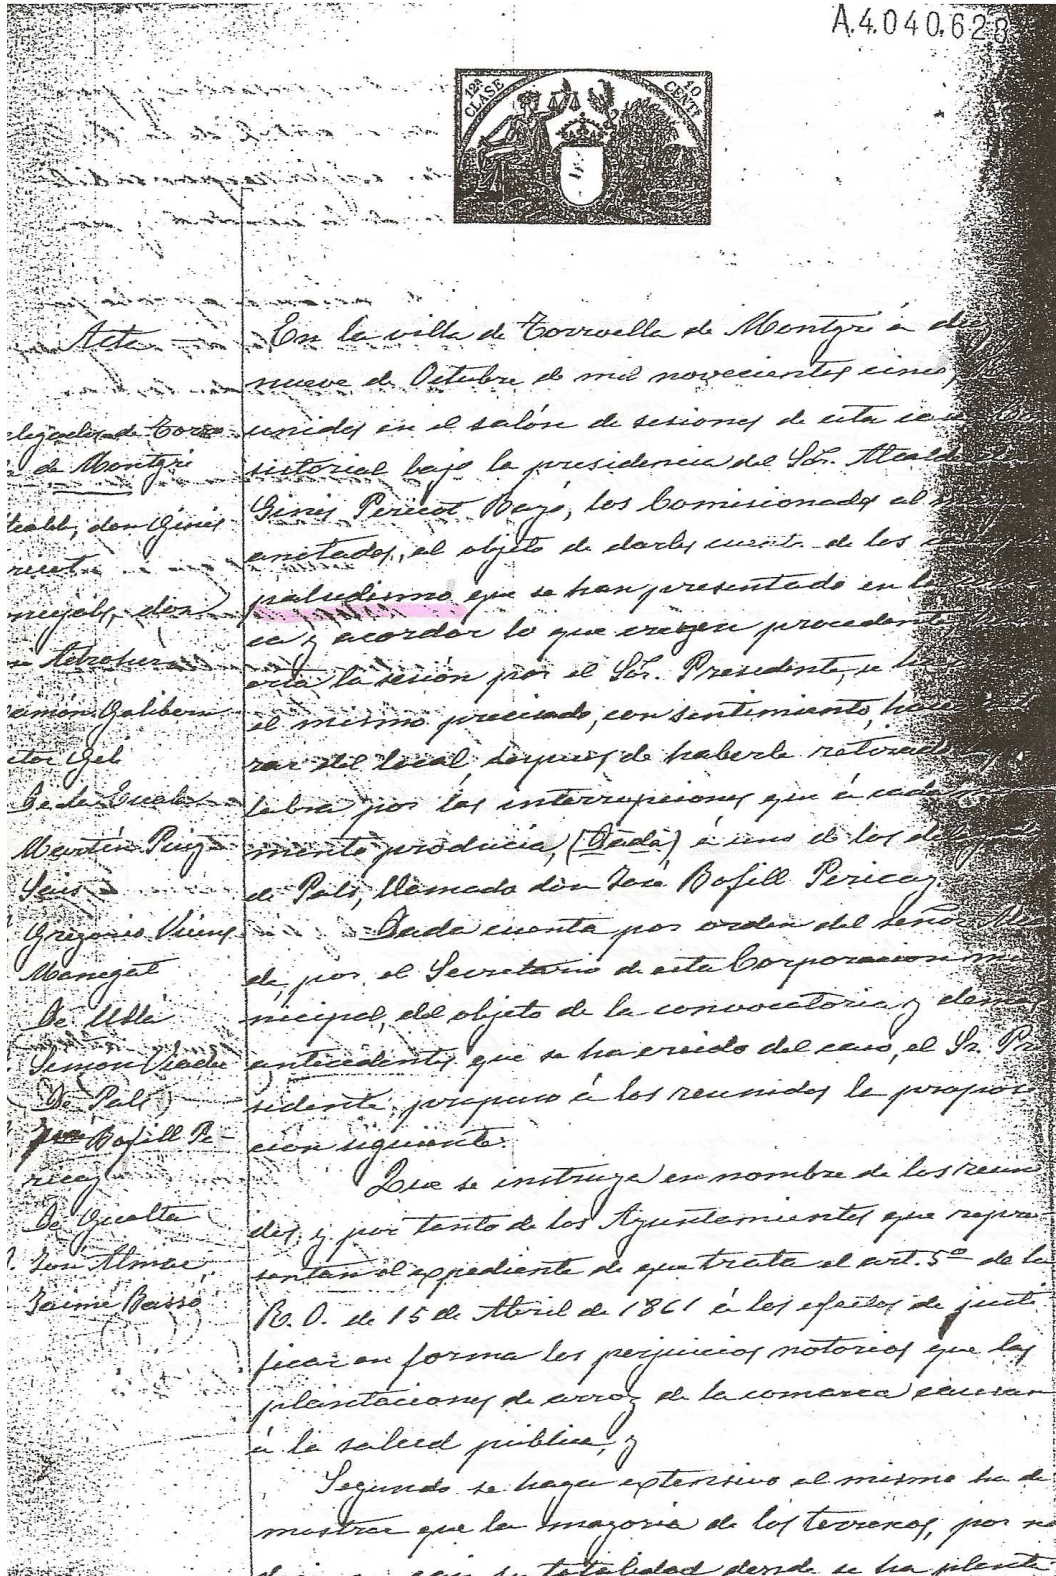 A.4.040.628
12ª CLASE
10 CENTº
Acta
legados de Torro
de Montgrí
don Ginés
don
Ramón Galibern
Martín Puig
Gregorio Vicens
Manegat
De Ullá
Simón Viader
De Pals
Bofill Pe-
ricay
De Gualta
Juan Almar
Jaime Bassó
En la villa de Torroella de Montgrí á
nueve de Octubre de mil novecientos cinco,
unidos en el salón de sesiones de esta
sistorial bajo la presidencia del Sór. Alcalde
Ginés Pericot Bayó, los Comisionados al
anotados, al objeto de darles cuenta de los
paludismo que se han presentado en la
ca y acordar lo que creyen procedente
erta la sesión por el Sór. Presidente, se
el mismo precisado, con sentimiento,
rar del local, despues de haberle retirado
labra por las interrupciones que á cada
mento producia, (Dada) á uno de los
de Pals, llamado don José Bofill Pericay.
Dada cuenta por orden del señor Alcal
de, por el Secretario de esta Corporacion mu
nicipal, del objeto de la convocatoria y demas
antecedentes que se ha creido del caso, el Sr. Pre
sidente, propuso á los reunidos la proposi
ción siguiente:
Que se instruya en nombre de los reuni
dos, y por tanto de los Ayuntamientos que repre
sentan el expediente de que trata el art. 5º de la
R. O. de 15 de Abril de 1861 á los efectos de justi
ficar en forma los perjuicios notorios que las
plantaciones de arroz de la comarca causan
á la salud pública, y
Segundo se haga extensivo al mismo ha de
mostrar que la mayoria de los terrenos, por no
totalidad donde se ha plante